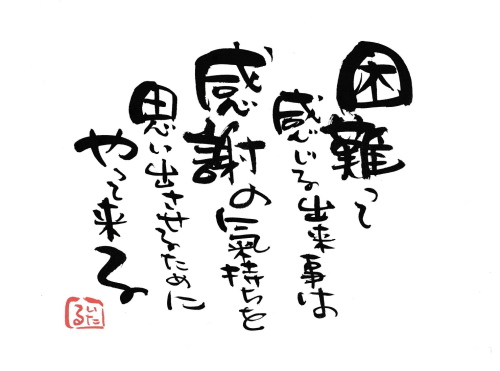 困難って
感じる出来事は
感謝の氣持ちを
思い出させるために
やって来る